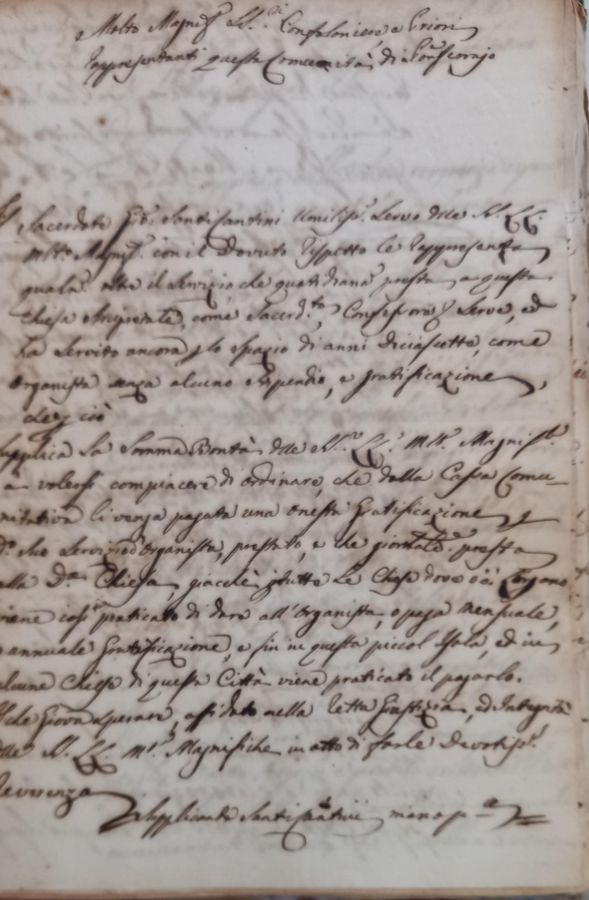 Molto Magnif.i SS.ri Confaloniere e Priori
Rappresentanti questa Comunità di
Sacerdote Gio: Santi Santini Umiliss.o Servo delle SS. LL.
Molto Magnif.e con il Dovuto Rispetto Le Rappresenta
qual.te oltre il Servizio, che quotidiana.te presta a questa
Chiesa Arcipretale, come Sacerd.te, Confessore, e Serve, ed
ha Servito ancora p lo spazio di anni Diciasette, come
Organista senza alcuno Stipendio, e gratificazione,
ciò
Supplica La Somma Bontà delle SS.rie LL. Mlt.o Magnif.e
a volersi compiacere di ordinare, che dalla Cassa Comu-
nitativa li venga pagata una onesta Gratificazione p
il d.o suo Servizio d'Organista, prestato, e che giornal.te presta
alla D.a Chiesa, giacchè p tutte Le Chiese dove v'è Organo
viene così praticato di dare all'Organista, o paga Mensuale,
o annuale Gratificazione, e fin in questa piccol Isola, ed in
alcune Chiese di questa Città viene praticato il pagarlo.
Che Giova Sperare, affidato nella Retta Giustizia, ed Integrità
delle SS. LL. M.to Magnifiche in atto di farle Devotiss.a
Reverenza
Supplicante Santi Santini mano p.a